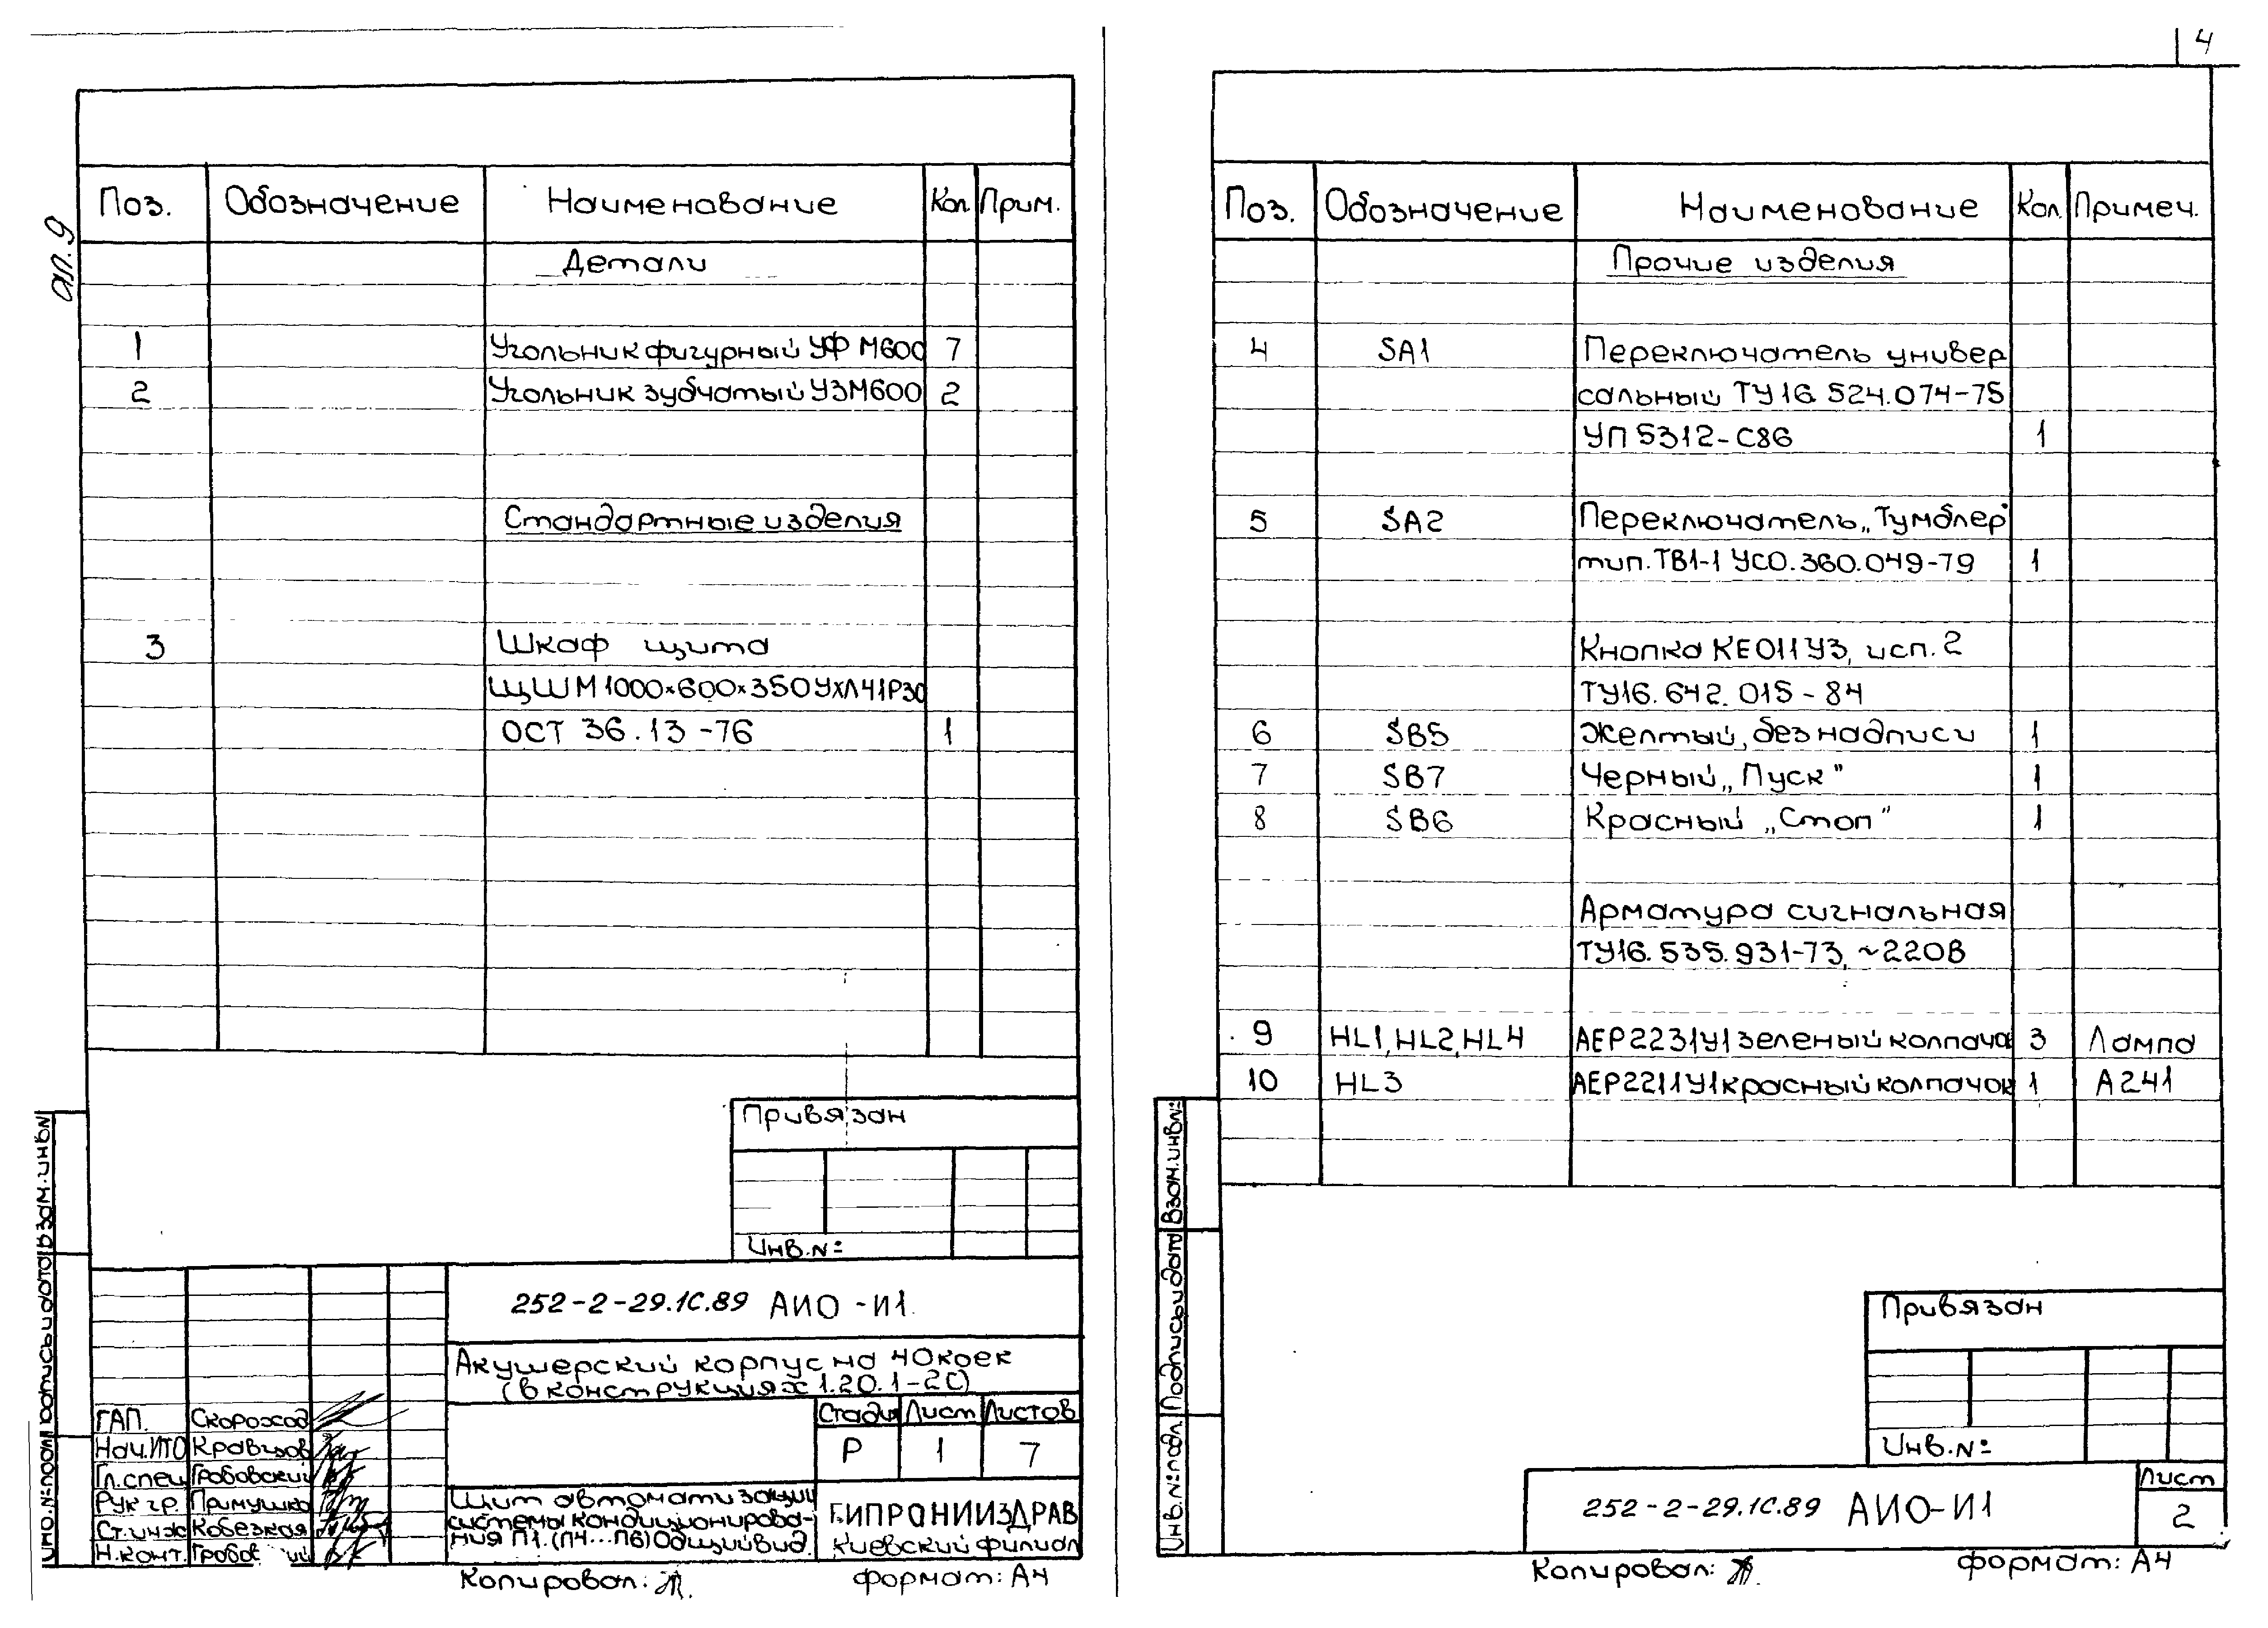 4
ал. 9
Поз. Обозначение Наименование Кол. Прим.
Детали
1 Угольник фигурный УФ М600 7
2 Угольник зубчатый УЗМ600 2
Стандартные изделия
3 Шкаф щита
ЩШМ1000×600×350УХЛ41Р30
ОСТ 36.13-76 1
Привязан
Инв.№
252-2-29.1С.89 АИО-И1.
Акушерский корпус на 40коек
(в конструкциях 1.20.1-2С)
Стадия Лист Листов
Р 1 7
ГАП. Скороход
Нач.ИТО Кравцов
Гл.спец Гробовский
Рук гр. Примушко
Ст.инж Кобезкая
Н.конт.
Щит автоматизации
системы кондиционирова-
ния П1.(П4...П6)Общий вид.
ГИПРОНИИЗДРАВ
Киевский филиал
Инв.№подл Подпись и дата Взам.инв№
Копировал:
Формат: А4
Поз. Обозначение Наименование Кол. Примеч.
Прочие изделия
4 SA1 Переключатель универ
сальный ТУ16.524.074-75
УП5312-С86 1
5 SA2 Переключатель „Тумблер"
тип.ТВ1-1 УСО.360.049-79 1
Кнопка КЕ011У3, исп.2
ТУ16.642.015-84
6 SB5 Желтый, без надписи 1
7 SB7 Черный „Пуск" 1
8 SB6 Красный „Стоп" 1
Арматура сигнальная
ТУ16.535.931-73, ~220В
9 HL1,HL2,HL4 АЕР2231У1зеленый колпачок 3 Лампа
10 HL3 АЕР2211У1красный колпачок 1 А241
Привязан
Инв.№
252-2-29.1С.89 АИО-И1
Лист
2
Инв.№подл Подпись и дата Взам.инв№
Копировал:
Формат: А4